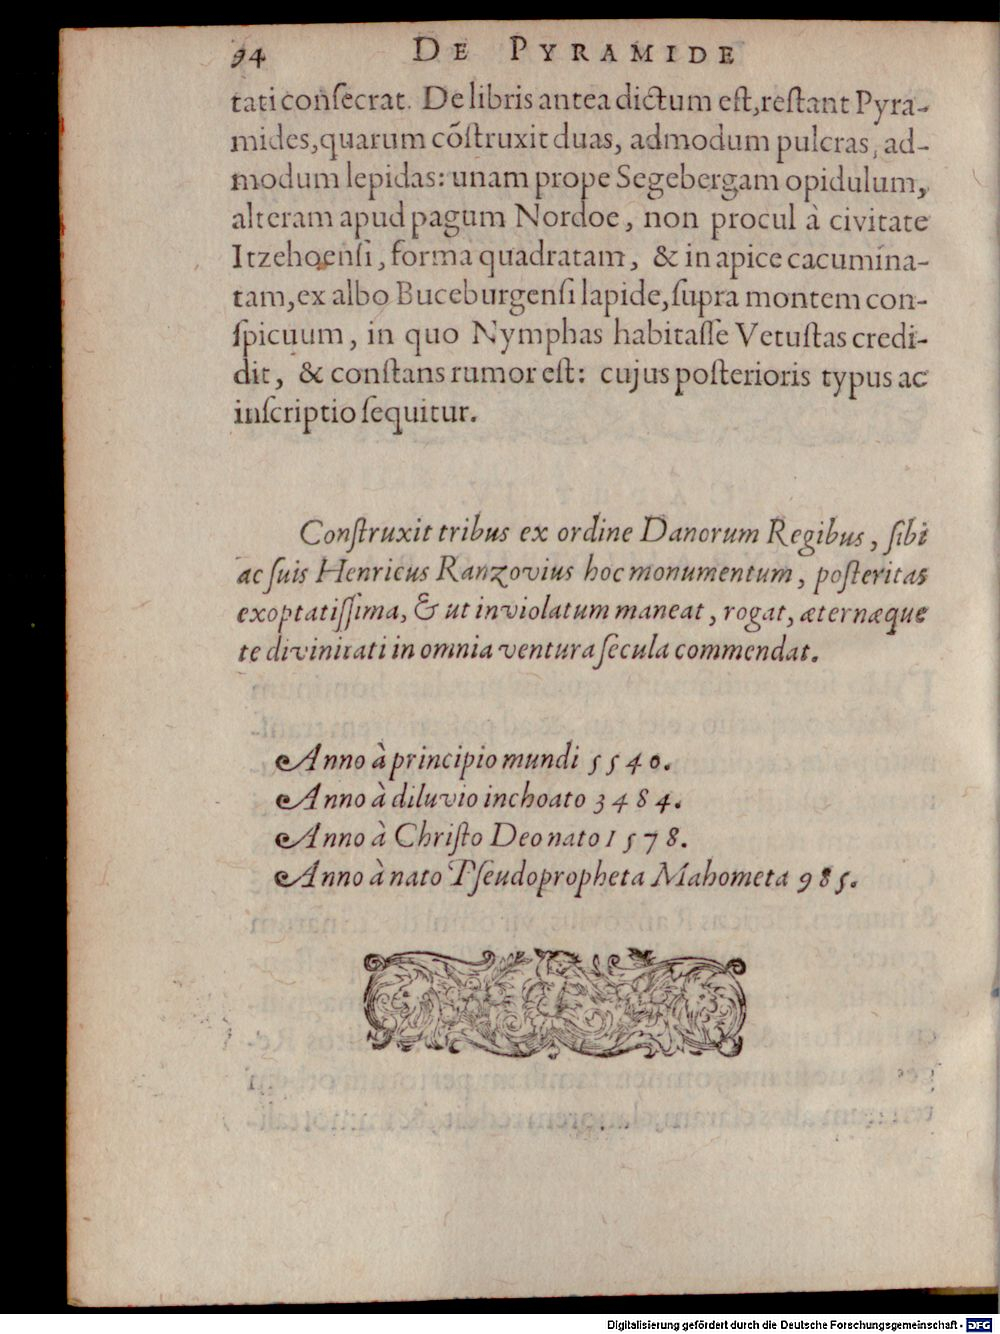 94 DE PYRAMIDE
tati conſecrat. De libris antea dictum eſt, reſtant Pyra-
mides, quarum cõſtruxit duas, admodum pulcras, ad-
modum lepidas: unam prope Segebergam opidulum,
alteram apud pagum Nordoe, non procul à civitate
Itzehoenſi, forma quadratam, & in apice cacumina-
tam, ex albo Buceburgenſi lapide, ſupra montem con-
ſpicuum, in quo Nymphas habitaſſe Vetuſtas credi-
dit, & conſtans rumor eſt: cujus poſterioris typus ac
inſcriptio ſequitur.
Conſtruxit tribus ex ordine Danorum Regibus, ſibi
ac ſuis Henricus Ranzovius hoc monumentum, poſteritas
exoptatiſſima, & ut inviolatum maneat, rogat, æternæque
te divinitati in omnia ventura ſecula commendat.
Anno à principio mundi 5540.
Anno à diluvio inchoato 3484.
Anno à Chriſto Deo nato 1578.
Anno à nato Pſeudopropheta Mahometa 985.
Digitalisierung gefördert durch die Deutsche Forschungsgemeinschaft - DFG